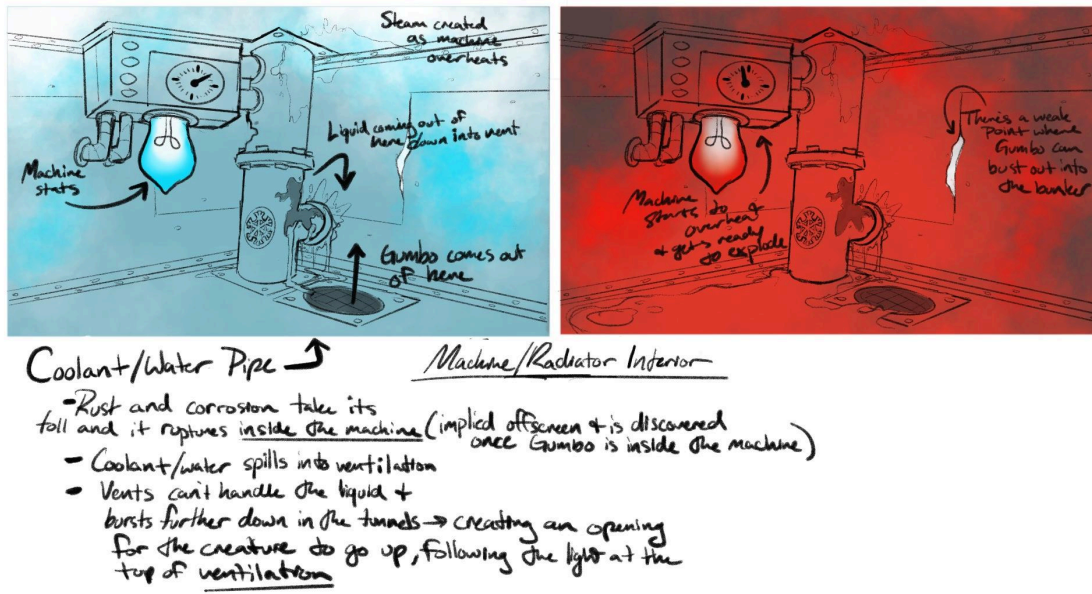 Steam created
as machine
overheats
Liquid coming out of
here down into vent
Machine
stats
Gumbo comes out
of here
There's a weak
point where
Gumbo can
bust out into
the bunker
Machine
starts to
overheat
& gets ready
to explode
Coolant/Water Pipe
Machine/Radiator Interior
- Rust and corrosion take its
toll and it ruptures inside the machine (implied offscreen & is discovered
once Gumbo is inside the machine)
- Coolant/water spills into ventilation
- Vents can't handle the liquid &
bursts further down in the tunnels → creating an opening
for the creature to go up, following the light at the
top of ventilation